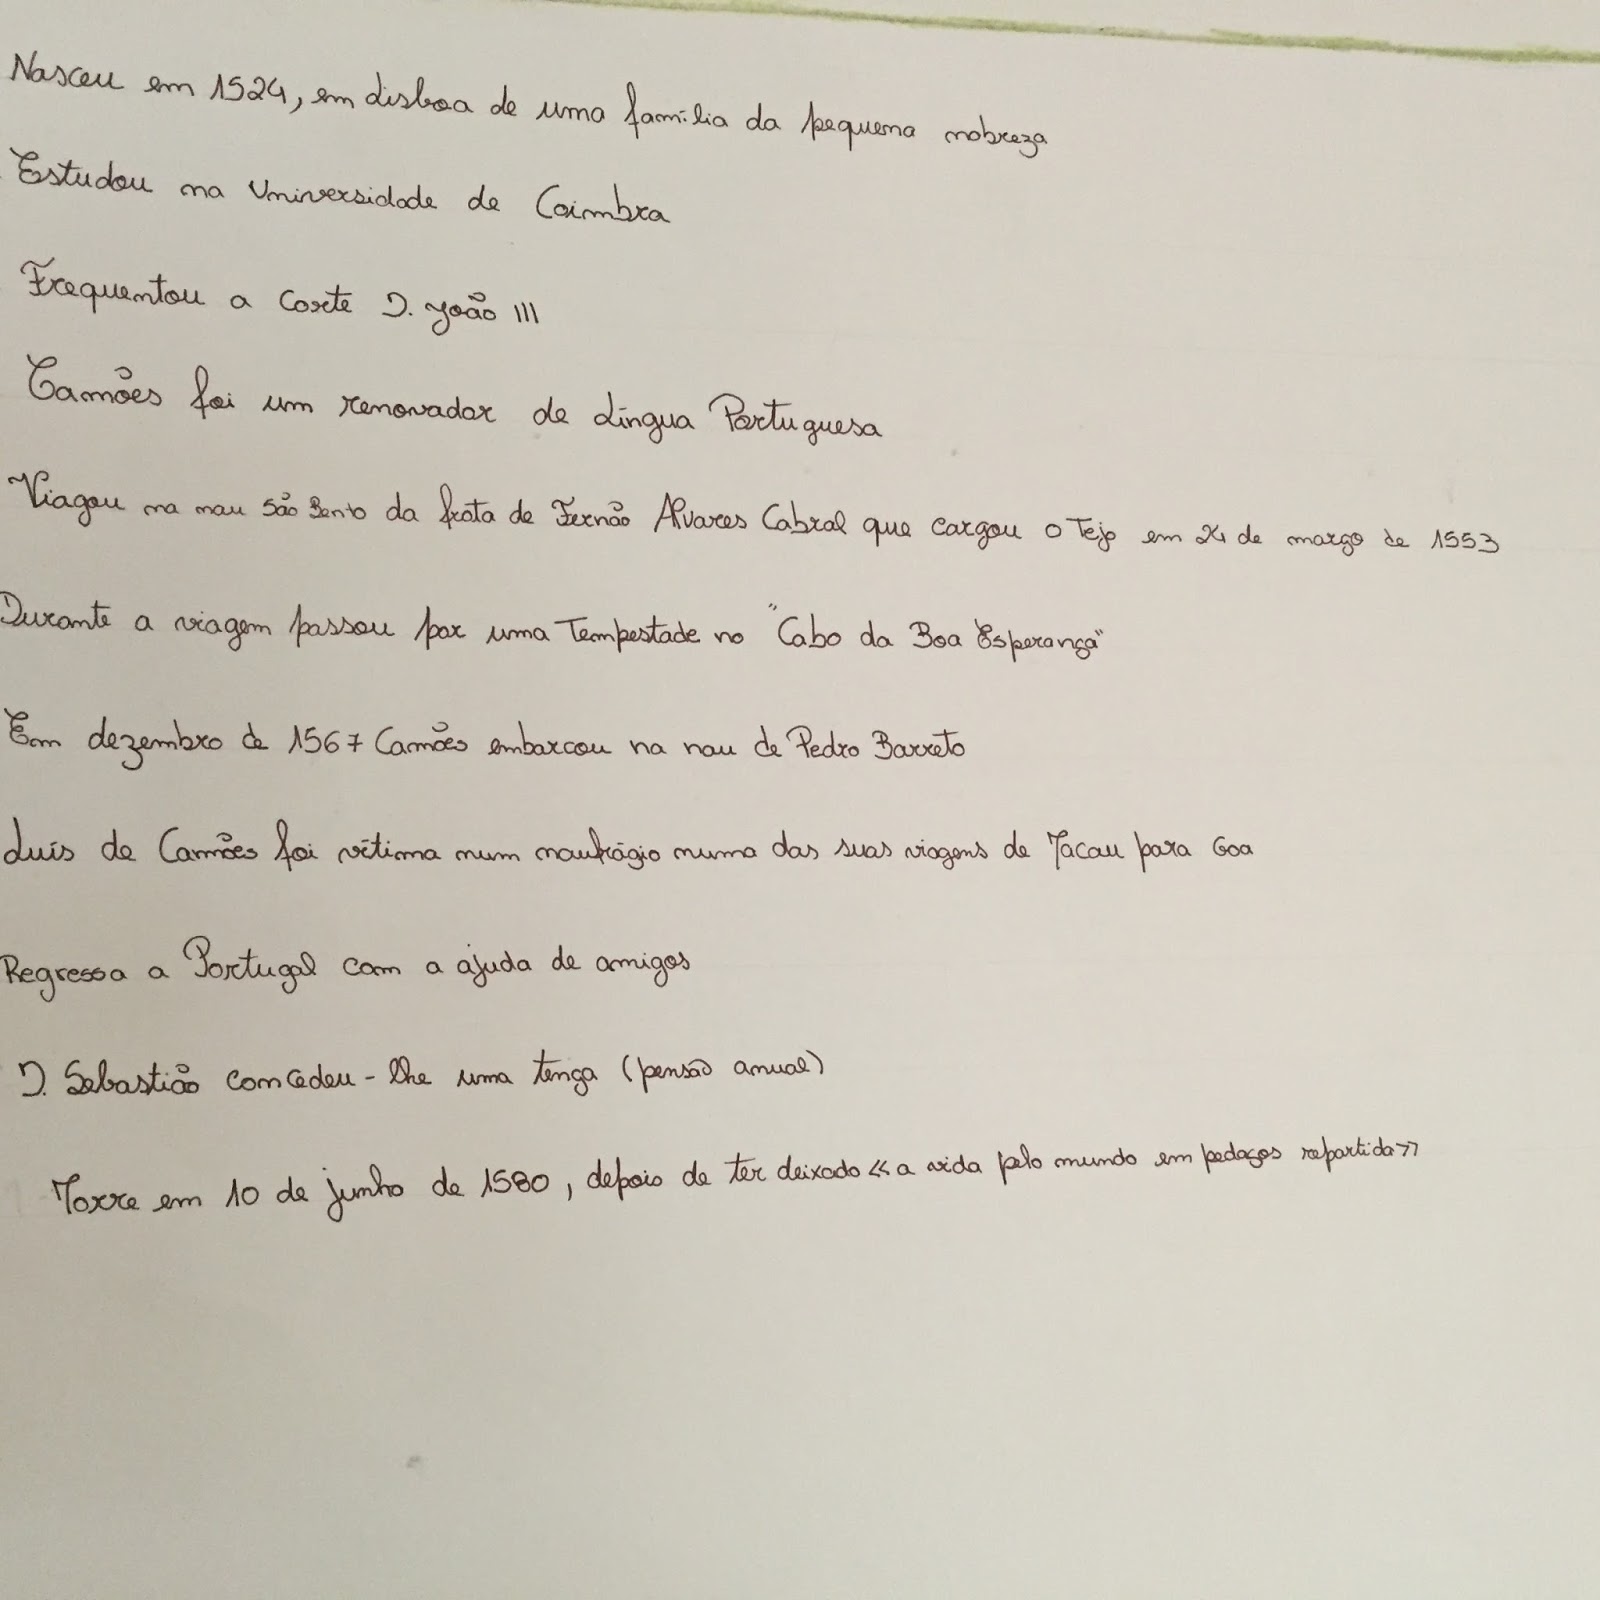 Nasceu em 1524, em Lisboa de uma família da pequena nobreza
Estudou na Universidade de Coimbra
Frequentou a corte D. João III
Camões foi um renovador de Língua Portuguesa
Viagou na nau São Bento da frota de Fernão Alvares Cabral que cargou o Tejo em 24 de março de 1553
Durante a viagem passou por uma Tempestade no "Cabo da Boa Esperança"
Em dezembro de 1567 Camões embarcou na nau de Pedro Barreto
Luís de Camões foi vítima num naufrágio numa das suas viagens de Macau para Goa
Regressa a Portugal com a ajuda de amigos
D. Sebastião concedeu-lhe uma tença (pensão anual)
Morre em 10 de junho de 1580, depois de ter deixado «a vida pelo mundo em pedaços repartida»